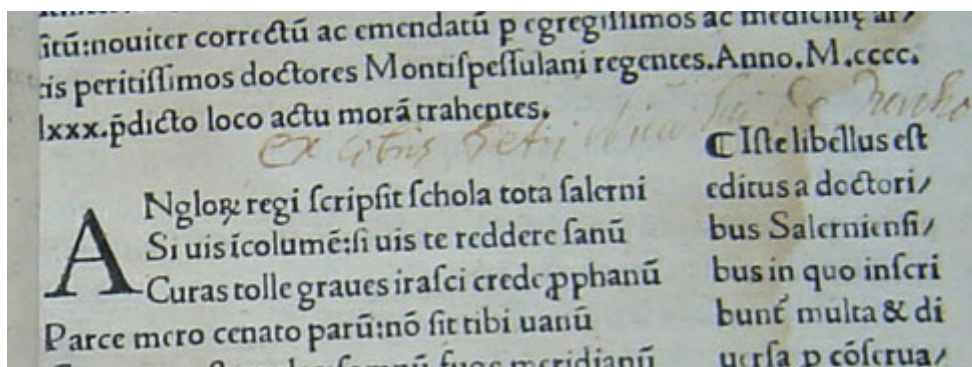 ītū:nouiter correctū ac emendatū p egregissimos ac medicinę ar/
tis peritissimos doctores Montispessulani regentes.Anno.M.cccc.
lxxx.p̄dicto loco actu morā trahentes.
ex libris Petri
ANgloꝝ regi scripsit schola tota salerni
Si uis īcolumē:si uis te reddere sanū
Curas tolle graues irasci crede ꝓphanū
Parce mero cenato parū:nō sit tibi uanū
meridianū
¶ Iste libellus est
editus a doctori/
bus Salerniensi/
bus in quo inscri
bunt᷑ multa & di
uersa p cōserua/